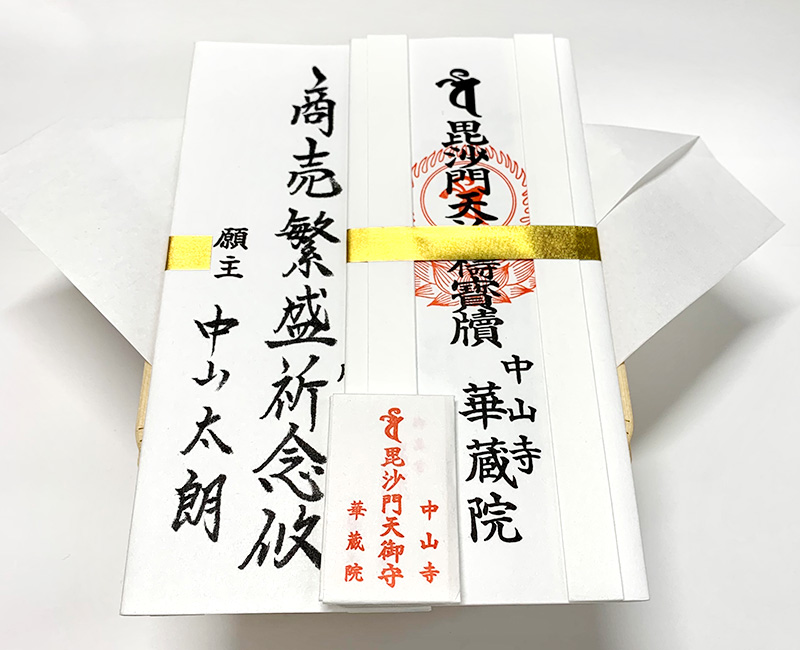 毘沙門天
寶牘
中山寺
華蔵院
商売繁盛祈念攸
願主 中山太朗
中山寺
毘沙門天御守
華蔵院